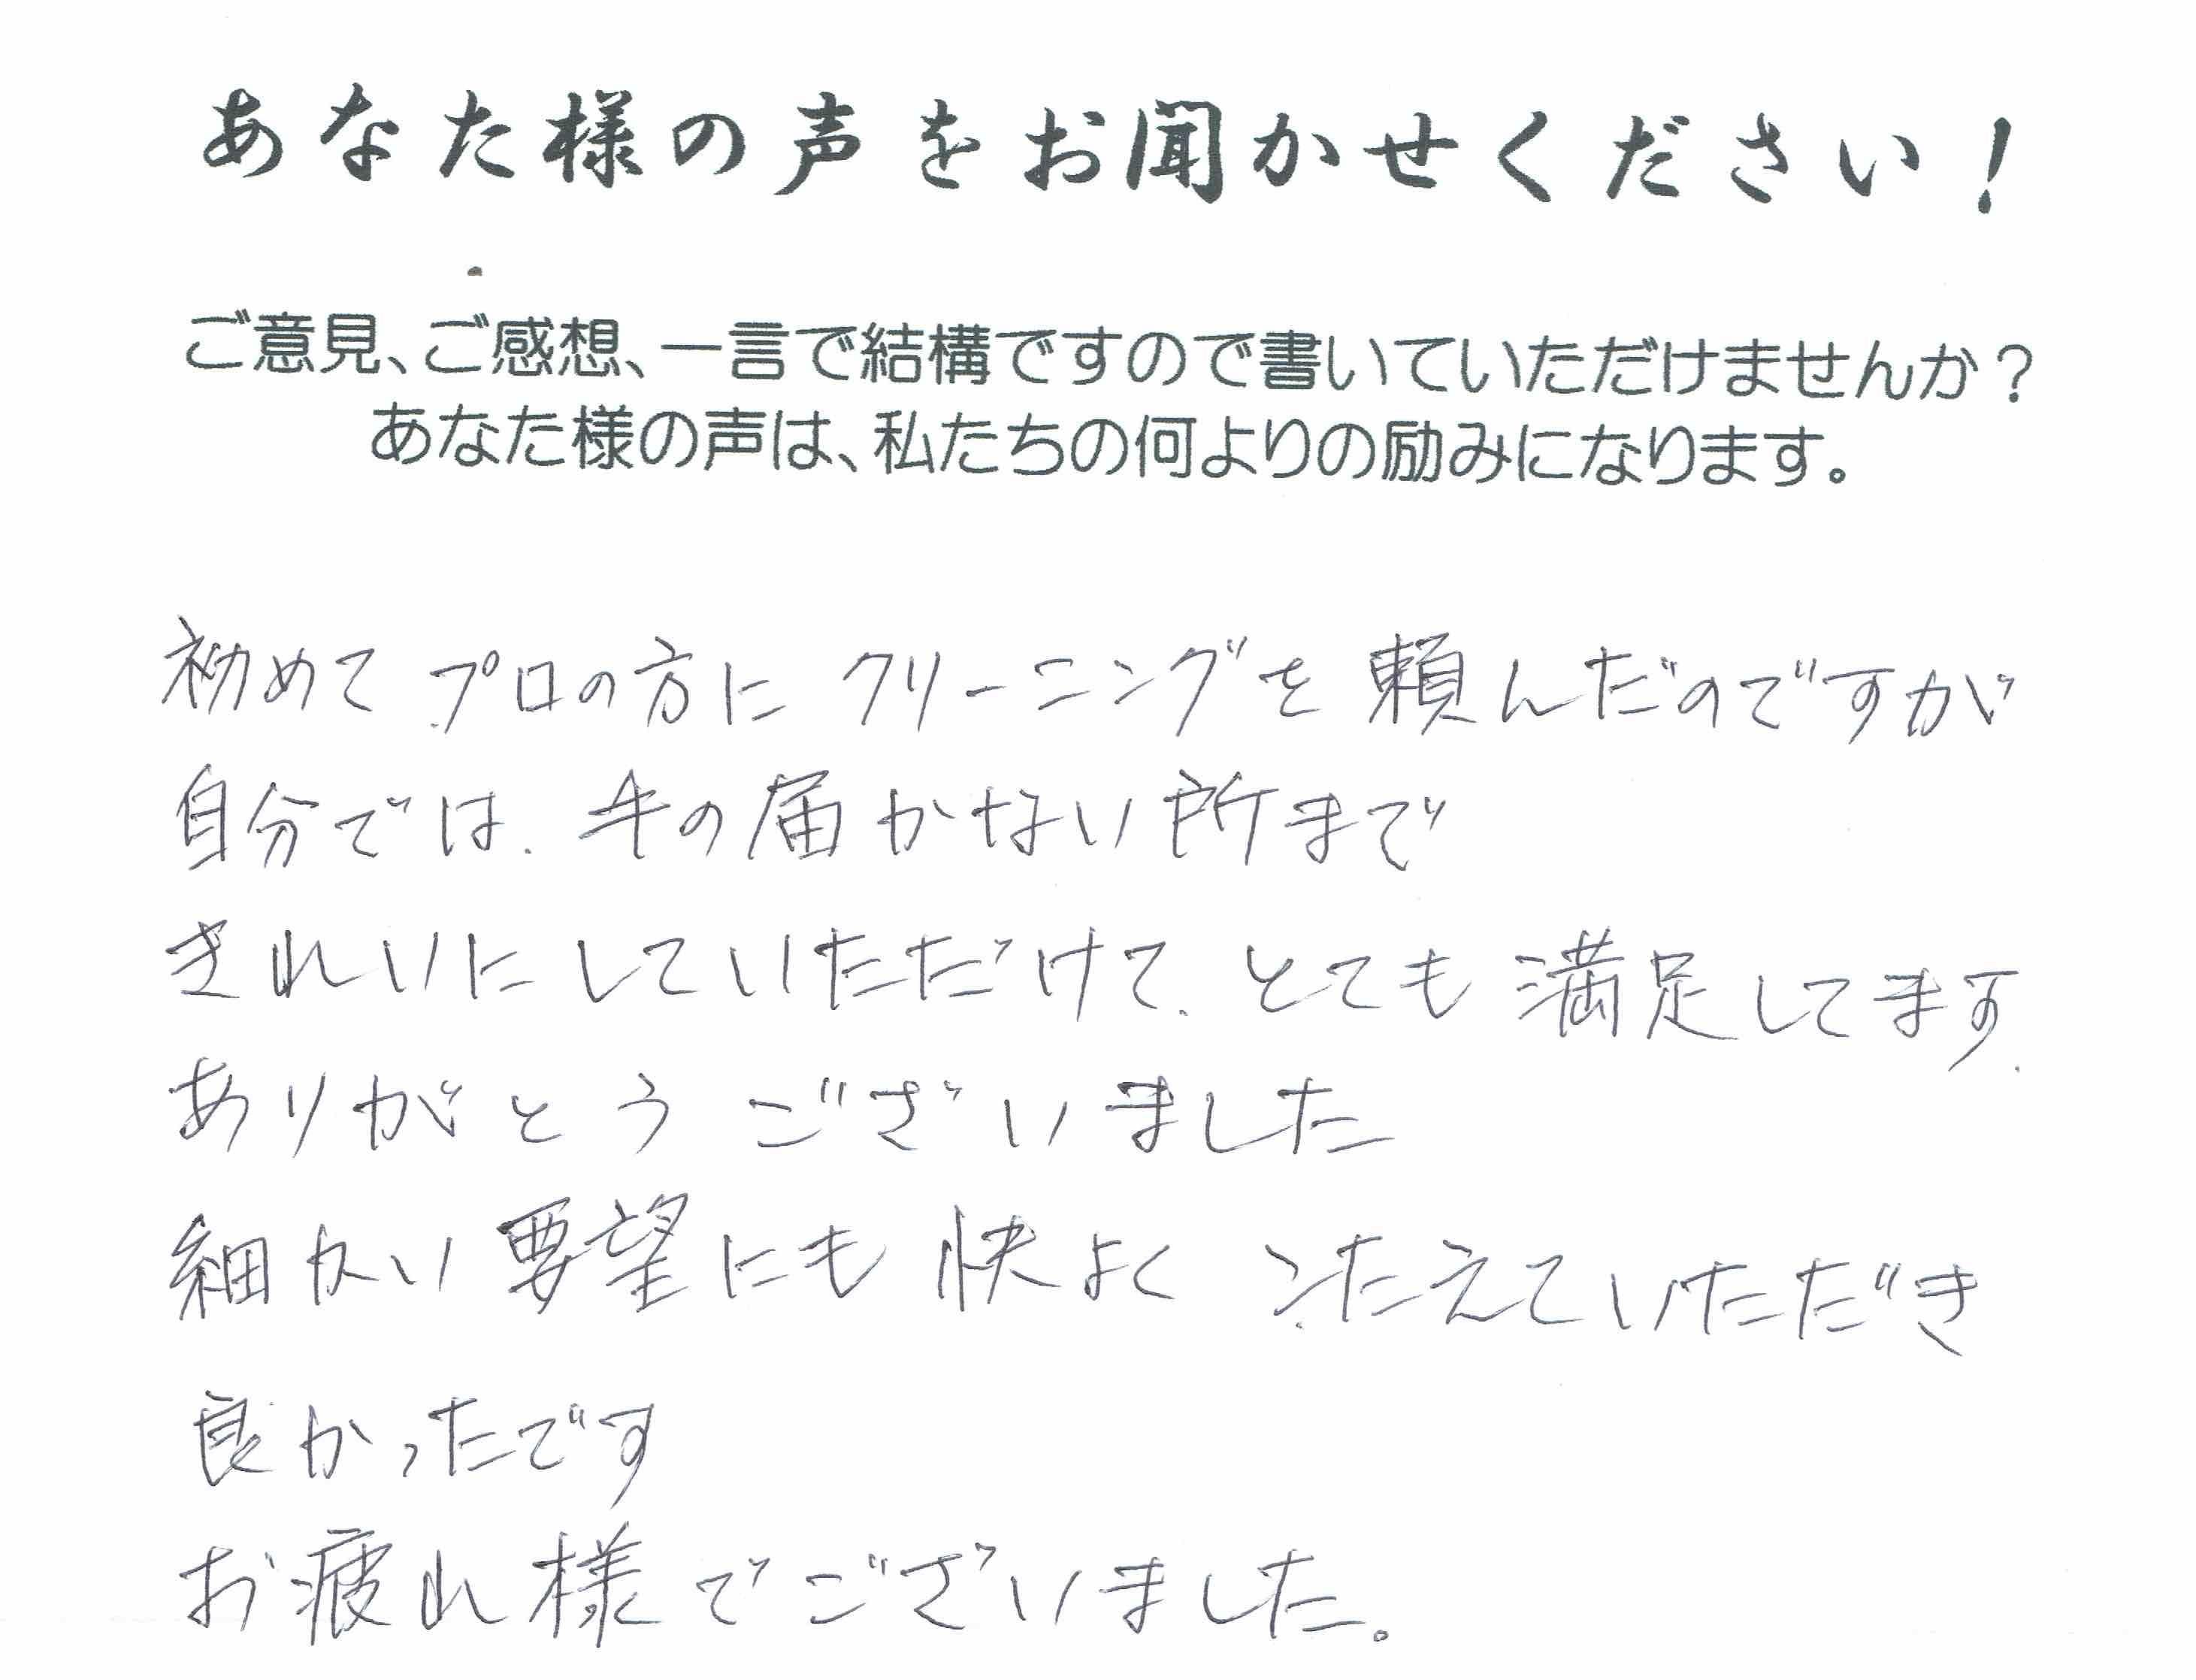 あなた様の声をお聞かせください!
ご意見、ご感想、一言で結構ですので書いていただけませんか?
あなた様の声は、私たちの何よりの励みになります。
初めて プロの方に クリーニングを 頼んだのですが
自分では、手の届かない所まで
きれいにしていただけて、とても 満足してます.
ありがとう ございました
細かい要望にも 快よく こたえていただき
良かったです
お疲れ様でございました。